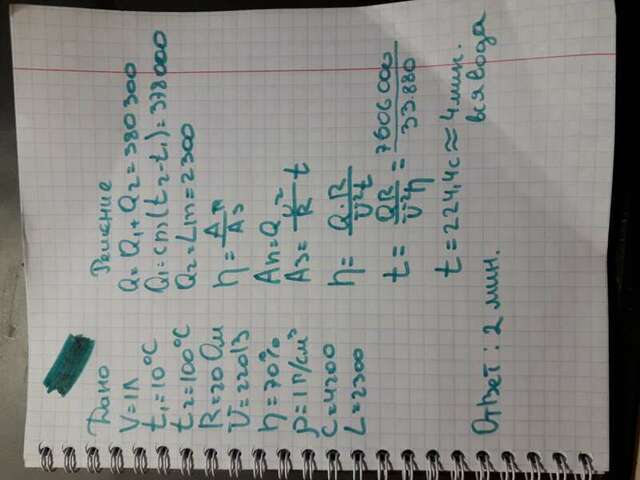 Дано
V=1л
t₁=10°C
t₂=100°C
R=20 Ом
U=220В
η=70%
ρ=1г/см³
C=4200
L=2300
Решение
Q=Q₁+Q₂=380300
Q₁=cm(t₂-t₁)=378000
Q₂=Lm=2300
η=Aп/Aз
Aп=Q
Aз=U²/R t
η=Q·R/U²t
t=QR/U²η=7606000/33.880
t=224,4c≈4мин.
вся вода
Ответ: 2 мин.